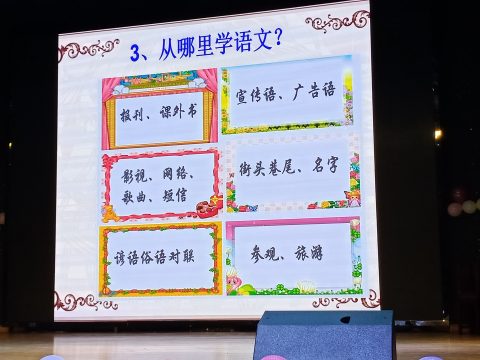 3、从哪里学语文?
报刊、课外书
宣传语、广告语
影视、网络、
歌曲、短信
街头巷尾、名字
谚语俗语对联
参观、旅游